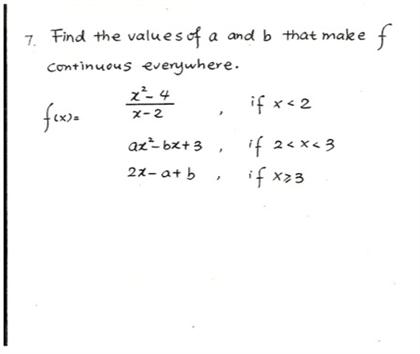 7. Find the values of a and b that make f
continuous everywhere.
f(x)= x²-4 / x-2 , if x<2
ax²-bx+3 , if 2<x<3
2x-a+b , if x≥3